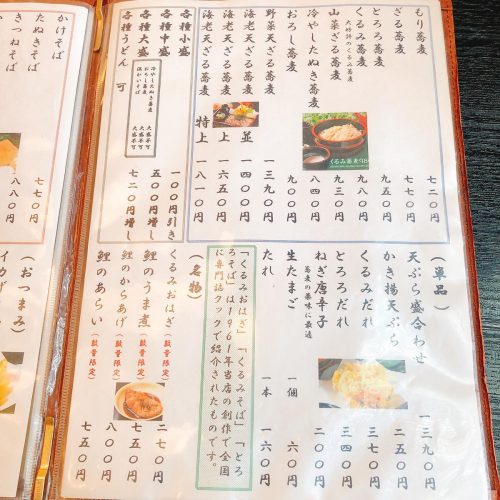 もり蕎麦 七二〇円
ざる蕎麦 七七〇円
とろろ蕎麦
くるみ蕎麦 九五〇円
大好評のくるみ蕎麦
山菜ざる蕎麦 九三〇円
冷やしたぬき蕎麦 八四〇円
おろし蕎麦 九〇〇円
野菜天ざる蕎麦 一三九〇円
海老天ざる蕎麦 並 一四〇〇円
海老天ざる蕎麦 上 一六五〇円
海老天ざる蕎麦 特上 一八一〇円
くるみ蕎麦
各種小盛 一〇〇円引き
各種中盛 五〇〇円増し
各種大盛 七二〇円増し
冷やしたぬき蕎麦 大盛不可
おろし蕎麦 大盛不可
温かいそば 大盛不可
各種うどん 可
(単品)
天ぷら盛合わせ 一三九〇円
かき揚天ぷら 二五〇円
くるみだれ 三七〇円
とろろだれ 三四〇円
ねぎ唐辛子 二三〇円
蕎麦の薬味に最適
生たまご 一個 六〇円
たれ 一本 一六〇円
「くるみおはぎ」「くるみそば」「とろ
ろそば」は1961年当店の創作で全国
に専門誌クックで紹介されたものです。
(名物)
くるみおはぎ(数量限定) 二七〇円
鯉のうま煮(数量限定) 七五〇円
鯉のからあげ(数量限定) 八〇〇円
鯉のあらい(数量限定) 七五〇円
かけそば 七七〇円
たぬきそば 八八〇円
きつねそば
(おつまみ)
イカゲ